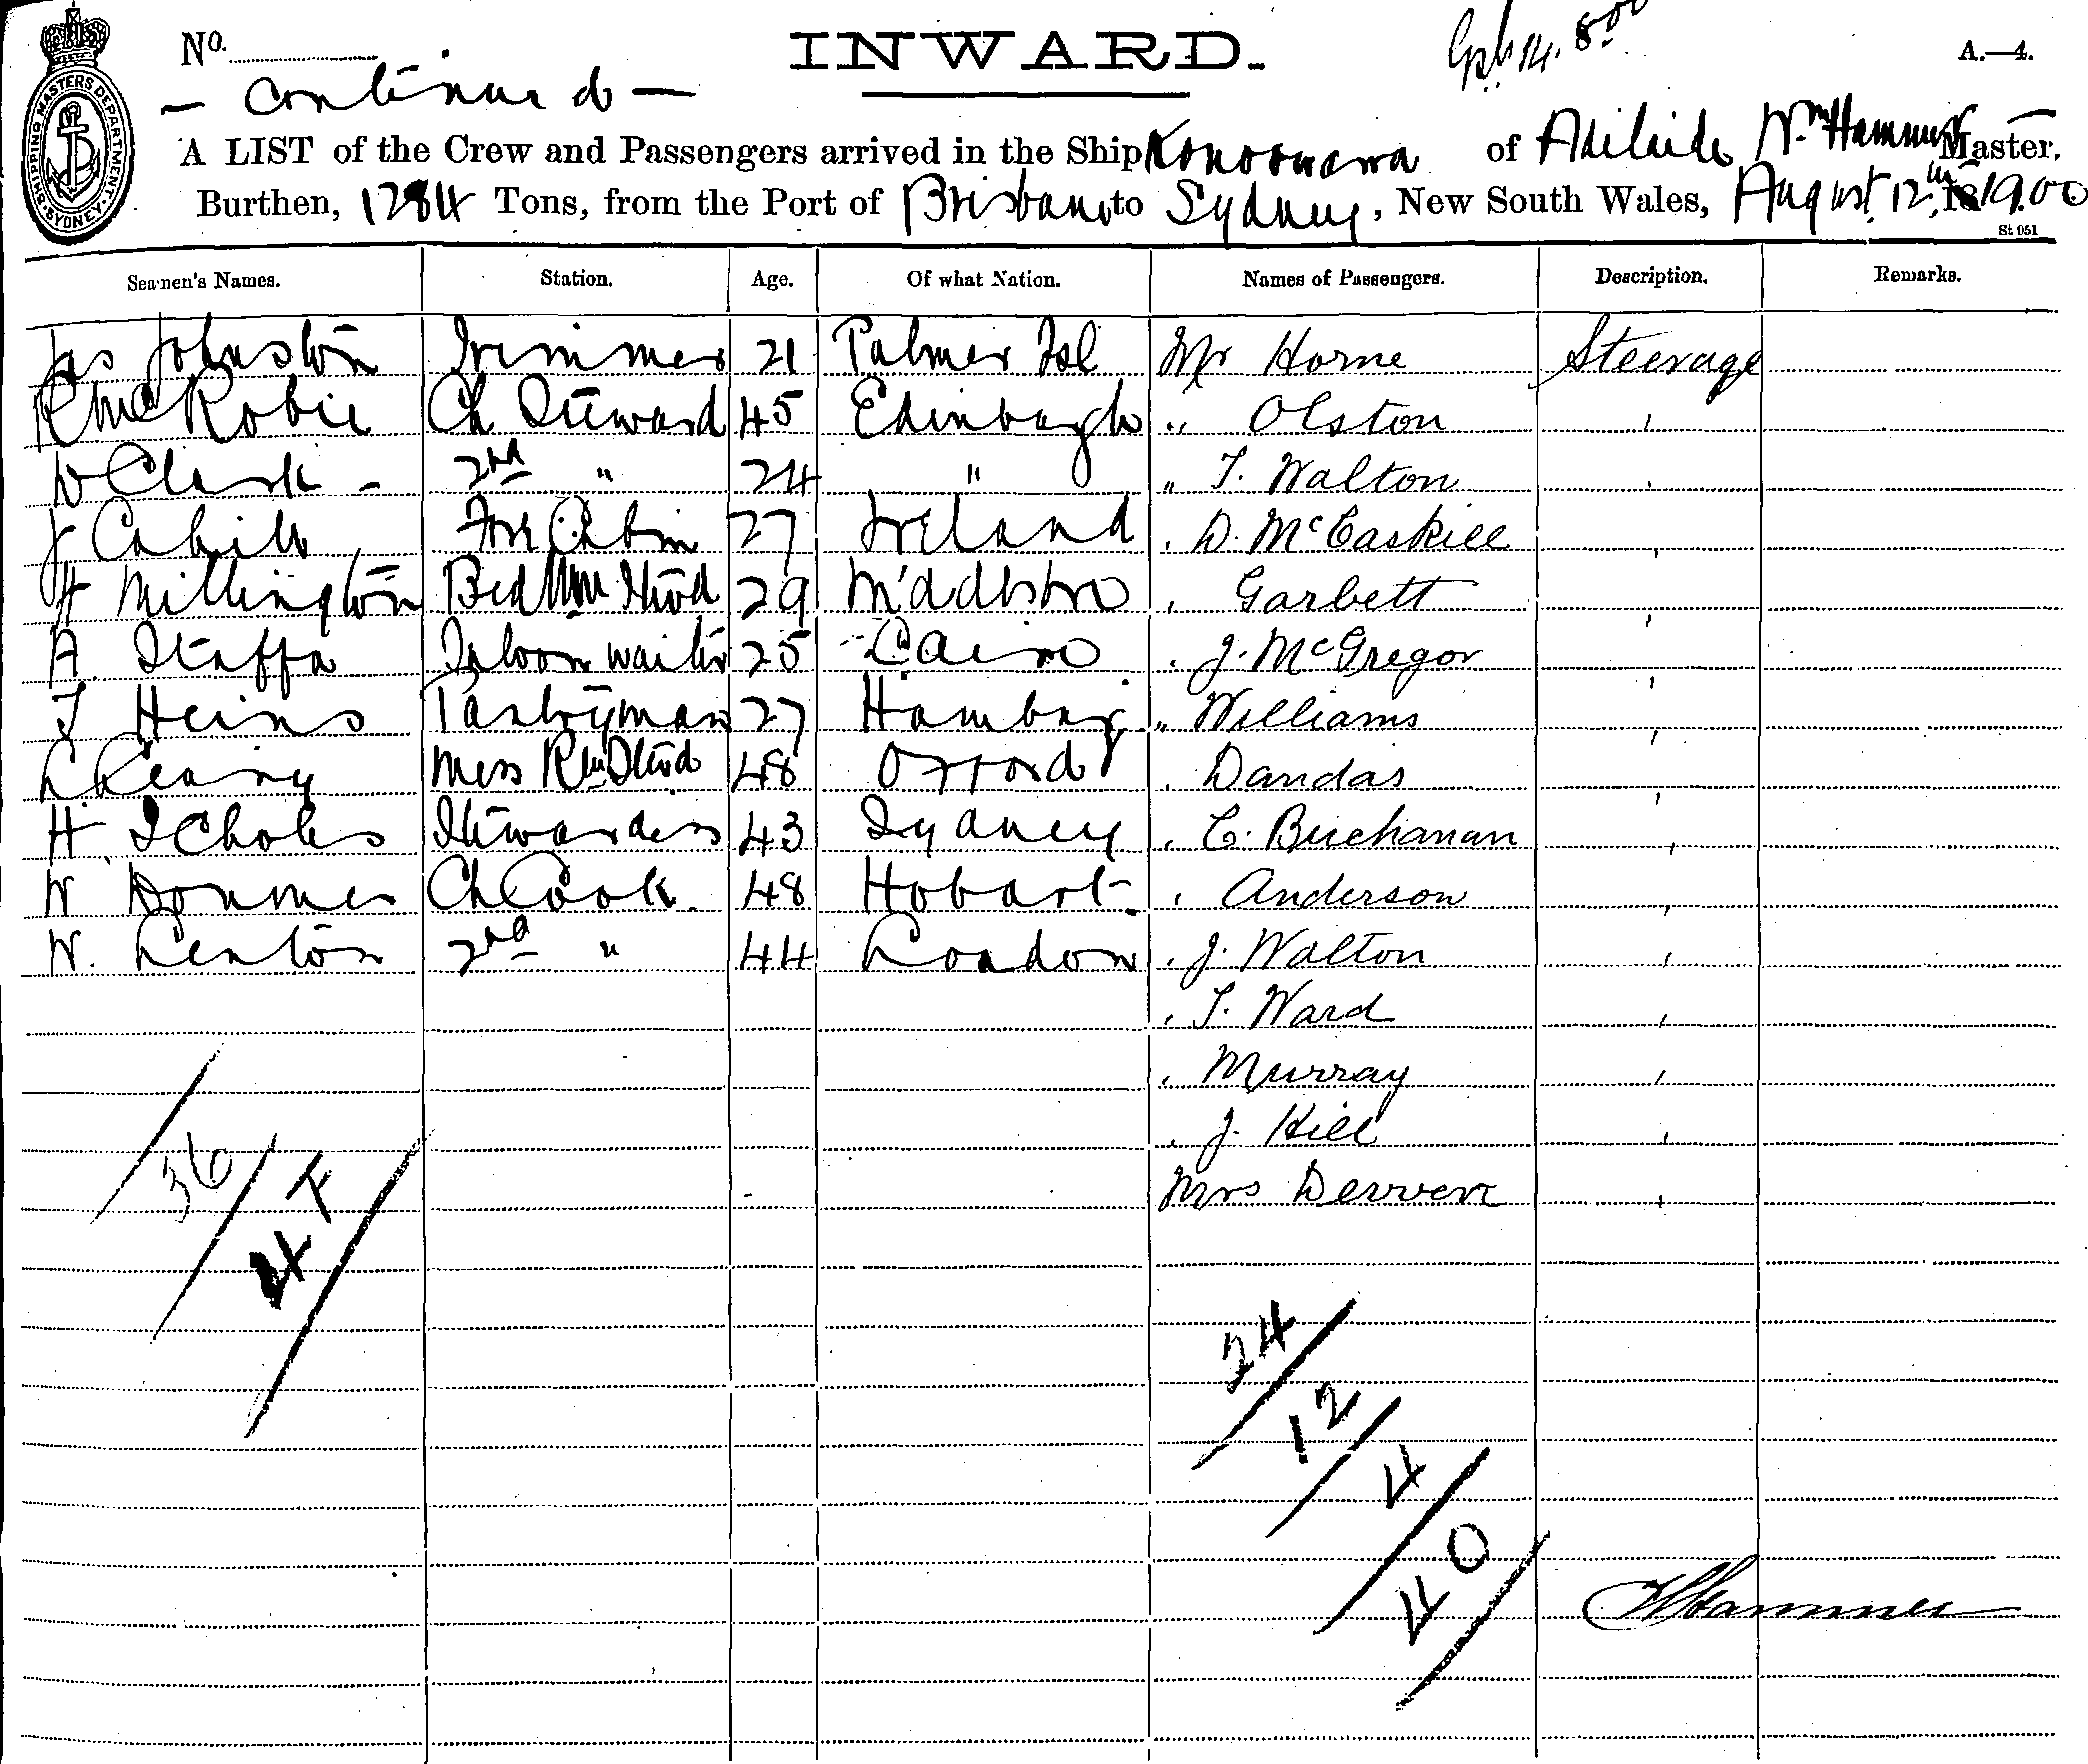 No.
INWARD.
8.00
A.—4.
— Continued —
SHIPPING MASTERS DEPARTMENT
SYDNEY
A LIST of the Crew and Passengers arrived in the Ship Konoowarra of Adelaide Wm Hammer Master,
Burthen, 1284 Tons, from the Port of Brisbane to Sydney, New South Wales, August 12th 1900
St 051
Seamen's Names. Station. Age. Of what Nation. Names of Passengers. Description. Remarks.
Jas Johnston Trimmer 21 Palmer Isl Mr Horne Steerage
R McRobie Ch Steward 45 Edinburgh " Olston "
W Clark - 2nd " 24 " " T. Walton "
J Cahill Fore Cabin 27 Ireland " D. McCaskill "
H Millington Bed Rm Stwd 29 M'ddlsbro " Garbett "
A. Staffa Saloon waiter 25 Cairo " J. McGregor "
T Heins Pantryman 27 Hamburg " Williams "
Mess Rm Stwd 48 Oxford " Dandas "
H. Scholes Stewardess 43 Sydney " C. Buchanan "
W Ch Cook 48 Hobart " Anderson "
W. Lenton 2nd " 44 London " J. Walton "
" T. Ward "
" Murray "
" J. Hill "
Mrs Derven "
36
24
12
4
40
W Hammer